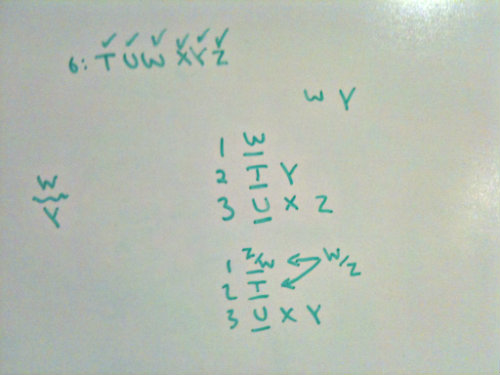 6: T U W X Y Z
W Y
1 W
2 T Y
3 U X Z
W
Y
1 Z/W W/Z
2 T
3 U X Y